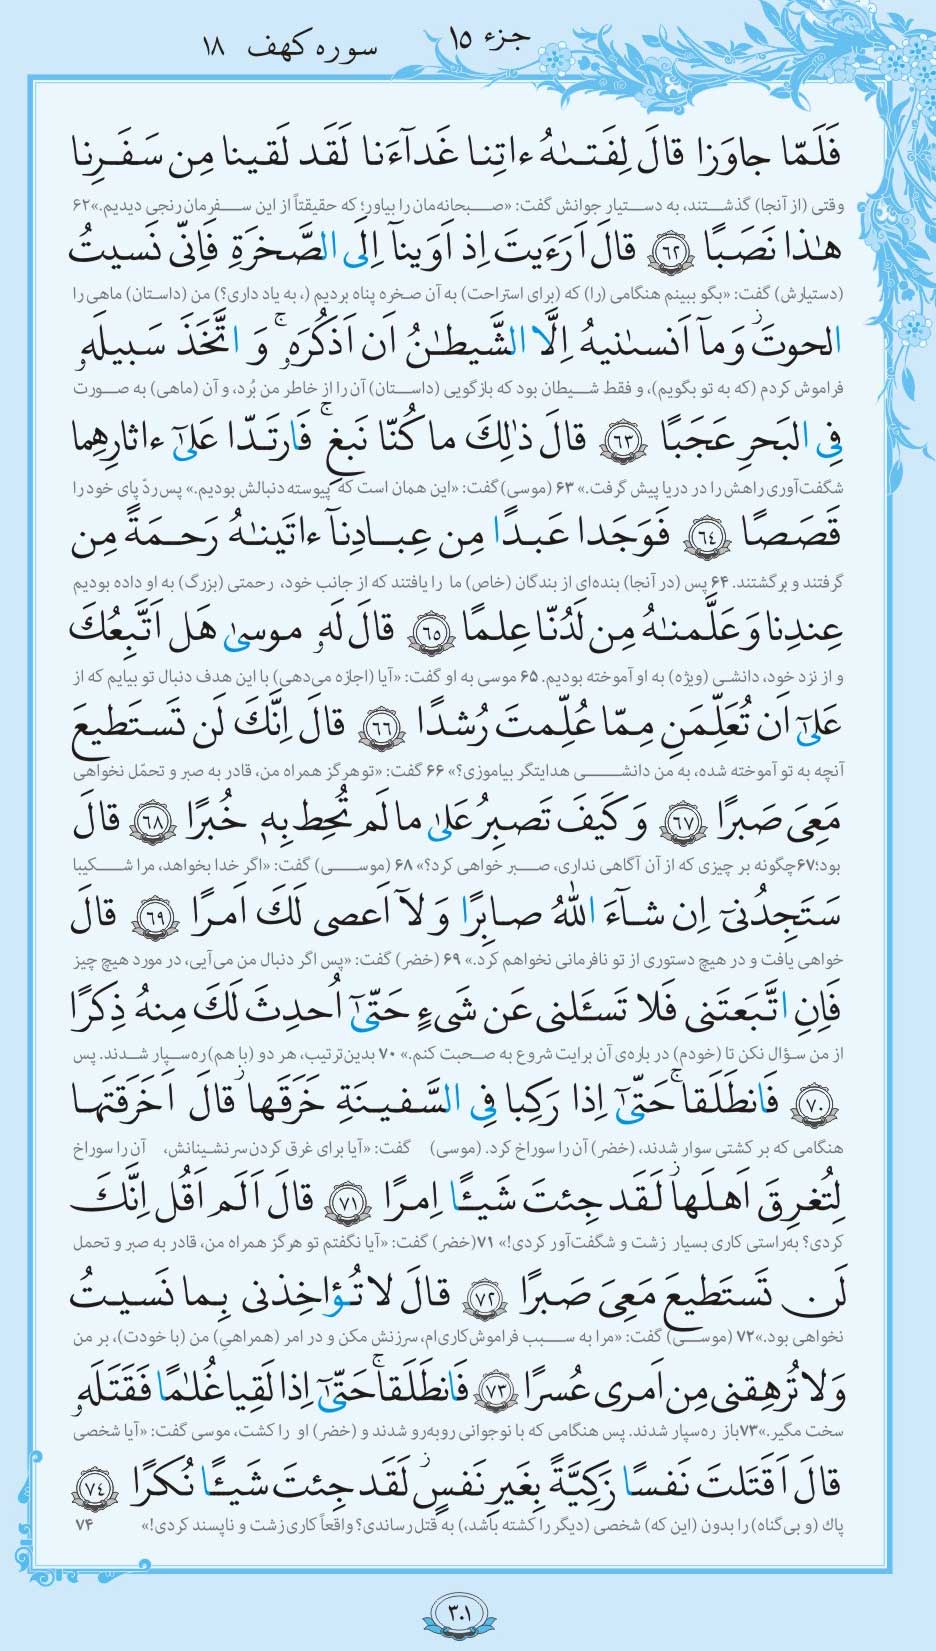 جزء ۱۵
سوره کهف ۱۸
فَلَمّا جاوَزا قالَ لِفَتىٰهُ ءاتِنا غَدآءَنا لَقَد لَقينا مِن سَفَرِنا
وقتی (از آنجا) گذشتند، به دستیار جوانش گفت: «صبحانه‌مان را بیاور؛ که حقیقتاً از این سفرمان رنجی دیدیم.»۶۲
هٰذا نَصَبًا ﴿٦٢﴾ قالَ اَرَءَيتَ اِذ اَوَينآ اِلَى الصَّخرَةِ فَاِنّى نَسيتُ
(دستیارش) گفت: «بگو ببینم هنگامی (را) که (برای استراحت) به آن صخره پناه بردیم (، به یاد داری؟) من (داستان) ماهی را
الحوتَ ۫ وَمآ اَنسىٰنيهُ اِلَّا الشَّيطٰنُ اَن اَذكُرَهٗ ۚ وَ اتَّخَذَ سَبيلَهٗ
فراموش کردم (که به تو بگویم)، و فقط شیطان بود که بازگویی (داستان) آن را از خاطر من بُرد، و آن (ماهی) به صورت
فِى البَحرِ عَجَبًا ﴿٦٣﴾ قالَ ذٰلِكَ ما كُنّا نَبغِ ۚ فَارتَدّا عَلىٰٓ ءاثارِهِما
شگفت‌آوری راهش را در دریا پیش گرفت.» ۶۳ (موسی) گفت: «این همان است که پیوسته دنبالش بودیم.» پس ردّ پای خود را
قَصَصًا ﴿٦٤﴾ فَوَجَدا عَبدًا مِن عِبادِنآ ءاتَينٰهُ رَحمَةً مِن
گرفتند و برگشتند. ۶۴ پس (در آنجا) بنده‌ای از بندگان (خاص) ما را یافتند که از جانب خود، رحمتی (بزرگ) به او داده بودیم
عِندِنا وَ عَلَّمنٰهُ مِن لَدُنّا عِلمًا ﴿٦٥﴾ قالَ لَهٗ موسىٰ هَل اَتَّبِعُكَ
و از نزد خود، دانشی (ویژه) به او آموخته بودیم. ۶۵ موسی به او گفت: «آیا (اجازه می‌دهی) با این هدف دنبال تو بیایم که از
عَلىٰٓ اَن تُعَلِّمَنِ مِمّا عُلِّمتَ رُشدًا ﴿٦٦﴾ قالَ اِنَّكَ لَن تَستَطيعَ
آنچه به تو آموخته شده، به من دانشی هدایتگر بیاموزی؟» ۶۶ گفت: «تو هرگز همراه من، قادر به صبر و تحمّل نخواهی
مَعِىَ صَبرًا ﴿٦٧﴾ وَ كَيفَ تَصبِرُ عَلىٰ ما لَم تُحِط بِهٖ خُبرًا ﴿٦٨﴾ قالَ
بود؛۶۷چگونه بر چیزی که از آن آگاهی نداری، صبر خواهی کرد؟» ۶۸ (موسی) گفت: «اگر خدا بخواهد، مرا شکیبا
سَتَجِدُنىٓ اِن شآءَ اللهُ صابِرًا وَ لآ اَعصى لَكَ اَمرًا ﴿٦٩﴾ قالَ
خواهی یافت و در هیچ دستوری از تو نافرمانی نخواهم کرد.» ۶۹ (خضر) گفت: «پس اگر دنبال من می‌آیی، در مورد هیچ چیز
فَاِنِ اتَّبَعتَنى فَلا تَسـَٔلنى عَن شَىءٍ حَتّىٰٓ اُحدِثَ لَكَ مِنهُ ذِكرًا
از من سؤال نکن تا (خودم) در باره‌ی آن برایت شروع به صحبت کنم.» ۷۰ بدین‌ترتیب، هر دو (با هم) ره‌سپار شدند. پس
﴿٧٠﴾ فَانطَلَقا ۚ حَتّىٰٓ اِذا رَكِبا فِى السَّفينَةِ خَرَقَها ۫ قالَ اَخَرَقتَها
هنگامی که بر کشتی سوار شدند، (خضر) آن را سوراخ کرد. (موسی) گفت: «آیا برای غرق کردن سرنشینانش، آن را سوراخ
لِتُغرِقَ اَهلَها ۫ لَقَد جِئتَ شَيـًٔا اِمرًا ﴿٧١﴾ قالَ اَلَم اَقُل اِنَّكَ
کردی؟ به‌راستی کاری بسیار زشت و شگفت‌آور کردی!» ۷۱(خضر) گفت: «آیا نگفتم تو هرگز همراه من، قادر به صبر و تحمل
لَن تَستَطيعَ مَعِىَ صَبرًا ﴿٧٢﴾ قالَ لا تُؤاخِذنى بِما نَسيتُ
نخواهی بود.»۷۲ (موسی) گفت: «مرا به سبب فراموش‌کاری‌ام، سرزنش مکن و در امر (همراهیِ) من (با خودت)، بر من
وَلا تُرهِقنى مِن اَمرى عُسرًا ﴿٧٣﴾ فَانطَلَقا ۚ حَتّىٰٓ اِذا لَقِيا غُلٰمًا فَقَتَلَهٗ
سخت مگیر.»۷۳باز ره‌سپار شدند. پس هنگامی که با نوجوانی روبه‌رو شدند و (خضر) او را کشت، موسی گفت: «آیا شخصی
قالَ اَقَتَلتَ نَفسًا زَكِيَّةً بِغَيرِ نَفسٍ ۫ لَقَد جِئتَ شَيـًٔا نُكرًا ﴿٧٤﴾
پاک (و بی‌گناه) را بدون (این که) شخصی (دیگر را کشته باشد،) به قتل رساندی؟ واقعاً کاری زشت و ناپسند کردی!» ۷۴
۳۰۱